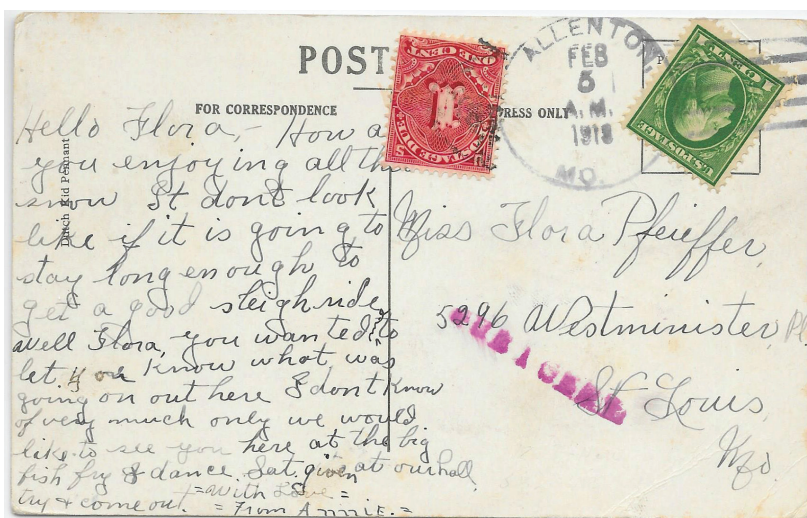 POST
FOR CORRESPONDENCE
RESS ONLY
Dutch Kid Pennant
ONE CENT
1
POSTAGE DUE
U.S.
ALLENTON
FEB
5
A.M.
1913
MO.
1 CENT 1
U.S. POSTAGE
P
Hello Flora,- How a
you enjoying all th
snow It dont look
like if it is going to
stay long enough to
get a good sleighride
Well Flora, you wanted to
let you know what was
going on out here I dont know
of very much only we would
like to see you here at the big
fish fry & dance Sat. given at our hall
try & come out. =With Love=
=From Annie.=
Miss Flora Pfeiffer,
5296 Westminister Pl
St Louis,
Mo.